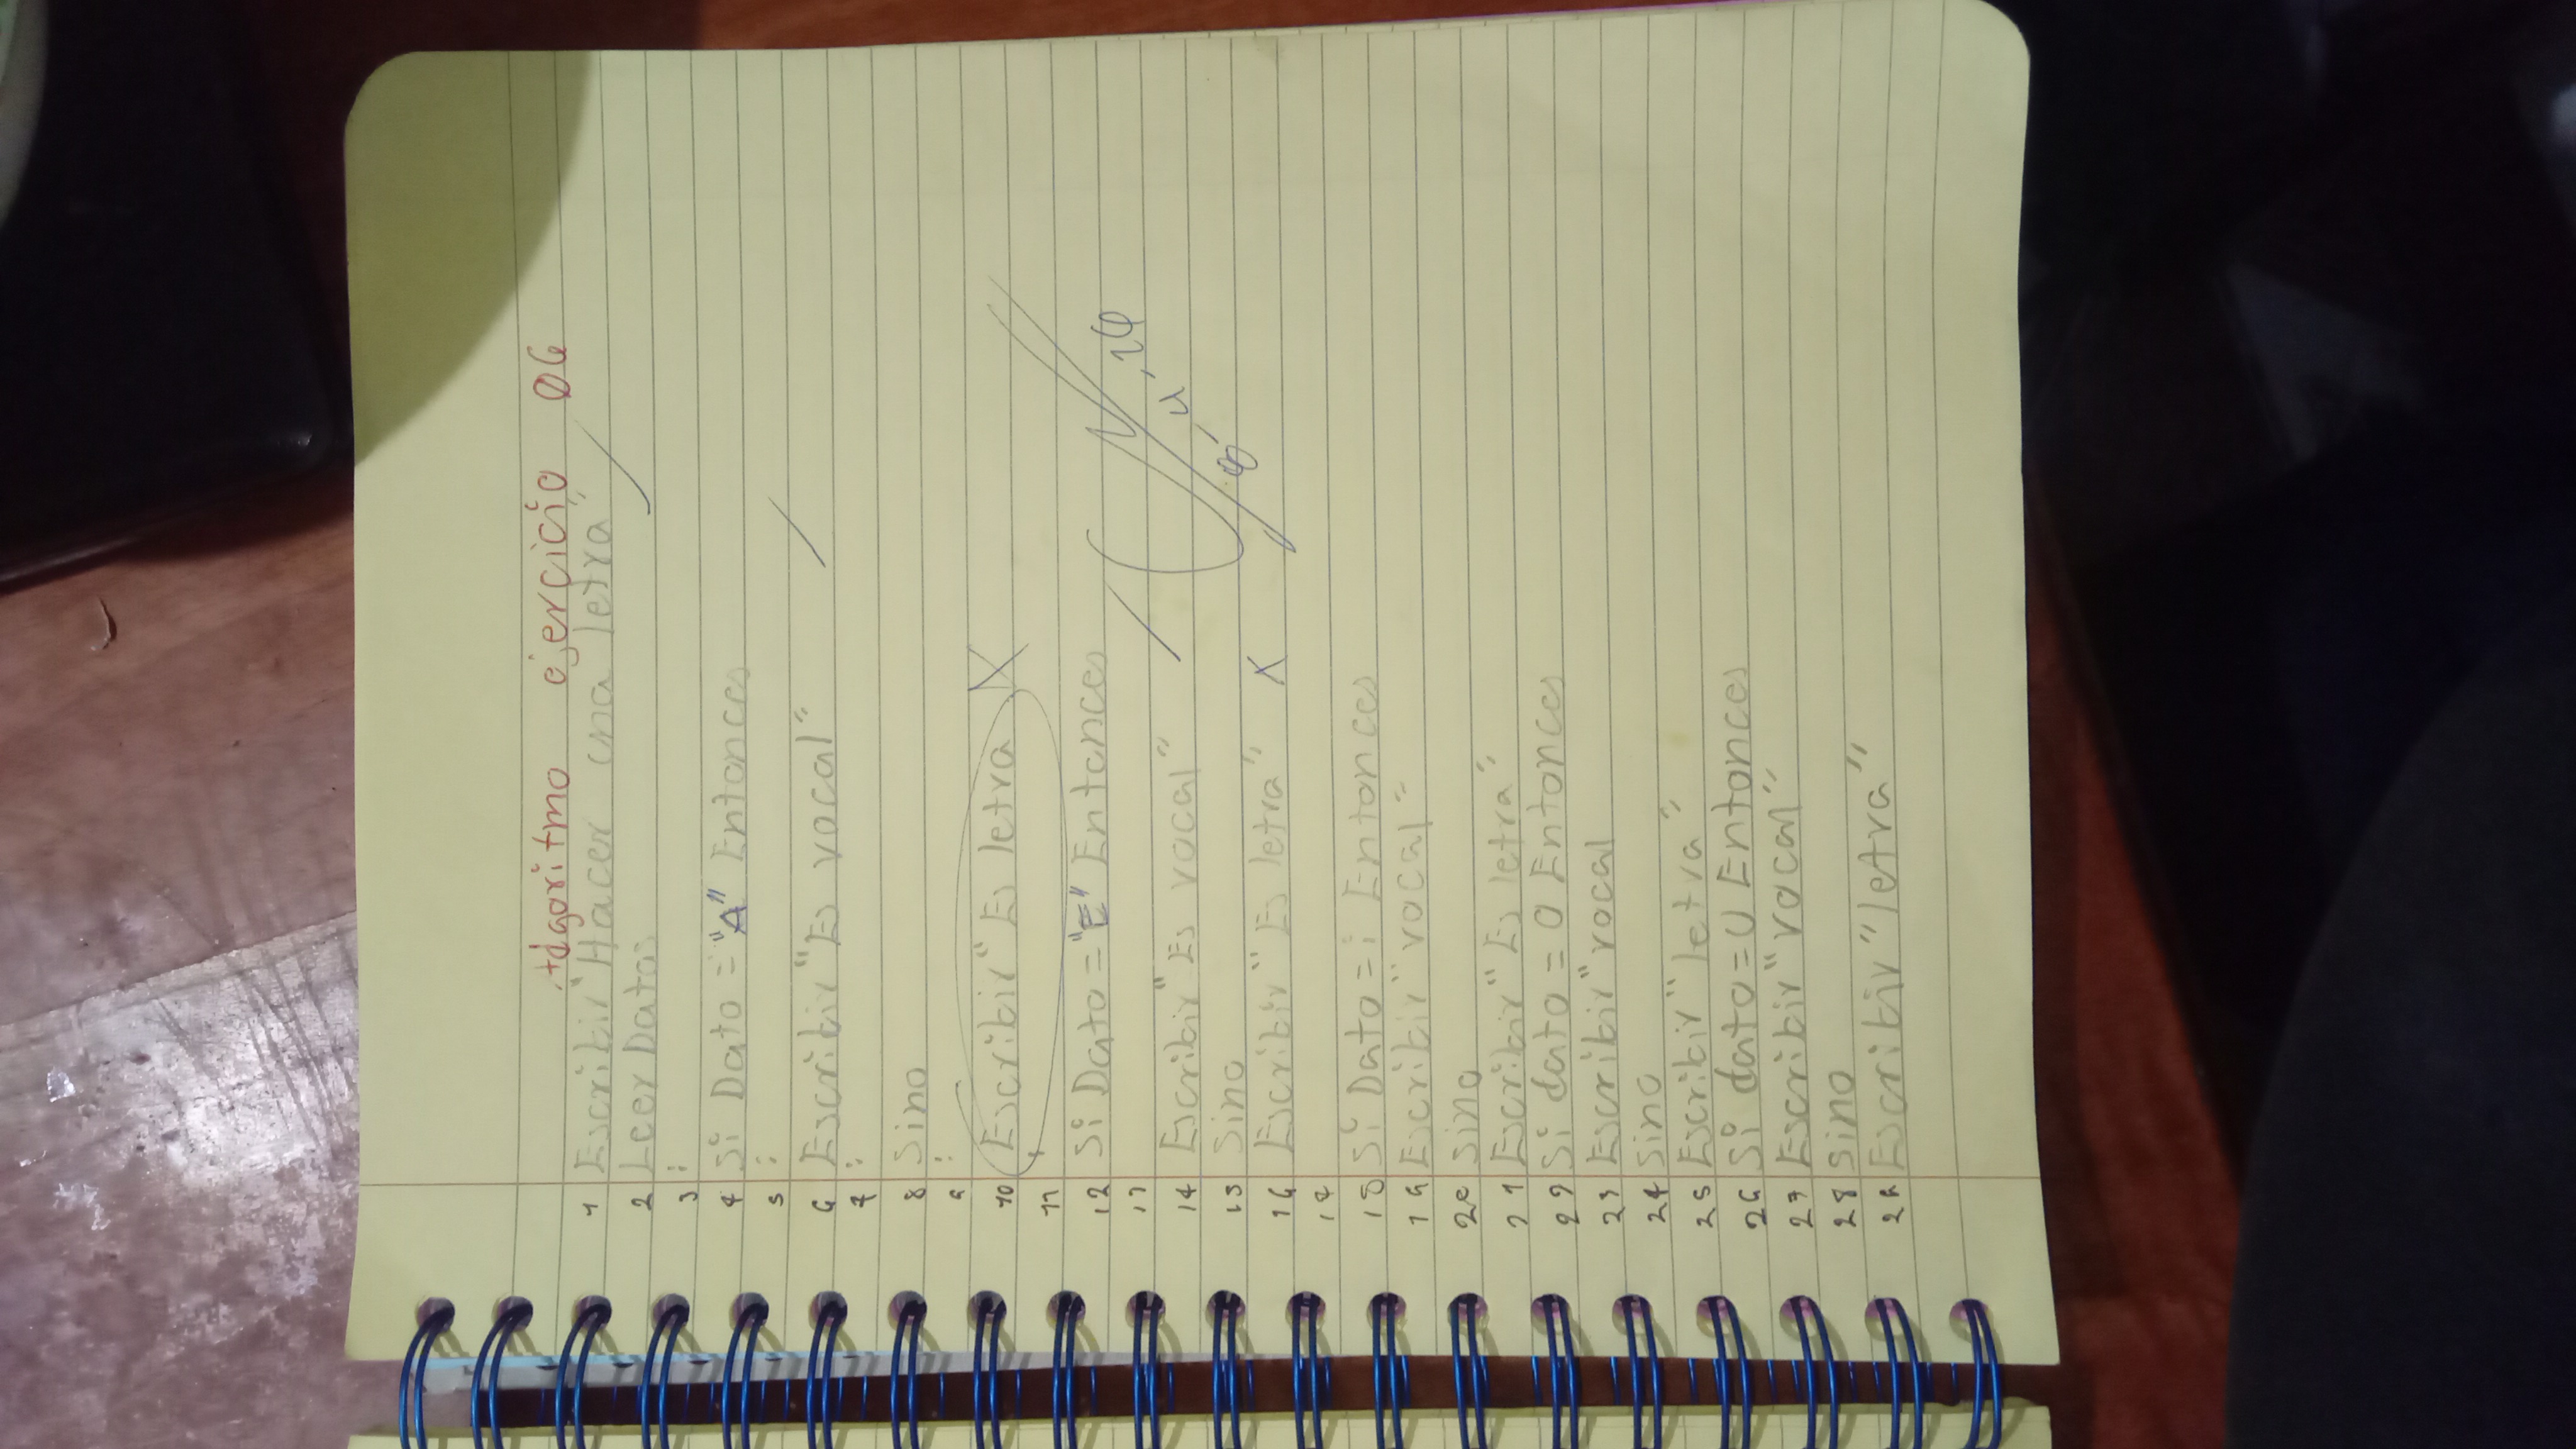 Algoritmo ejercicio 06
1 Escribir "Hacer una letra"
2 Leer Datos
3 :
4 Si Dato = "A" Entonces
5 :
6 Escribir "Es vocal"
7 :
8 Sino
9 :
10 Escribir "Es letra X
11
12 Si Dato = "E" Entonces
13
14 Escribir "Es vocal"
15 Sino
16 Escribir "Es letra" X
17
18 Si Dato = i Entonces
19 Escribir "vocal"
20 Sino
21 Escribir "Es letra"
22 Si dato = O Entonces
23 Escribir "vocal
24 Sino
25 Escribir "letra"
26 Si dato = U Entonces
27 Escribir "vocal"
28 Sino
29 Escribir "letra"